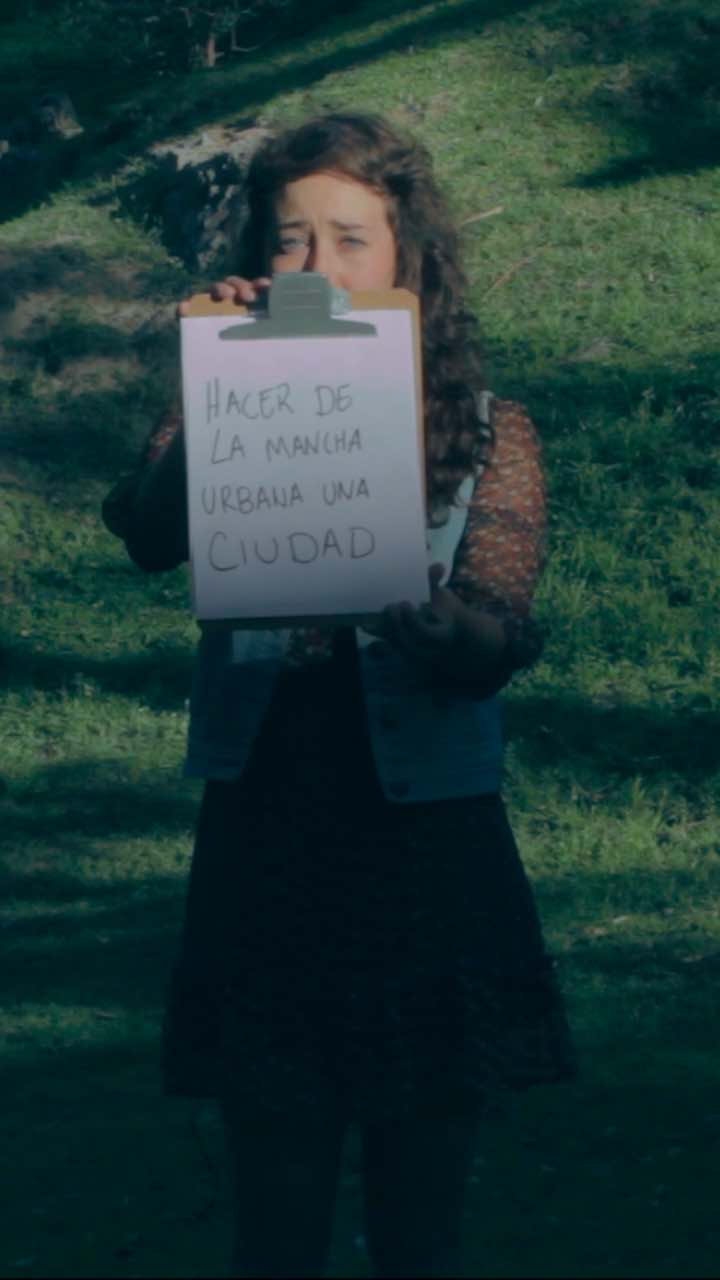 HACER DE
LA MANCHA
URBANA UNA
CIUDAD